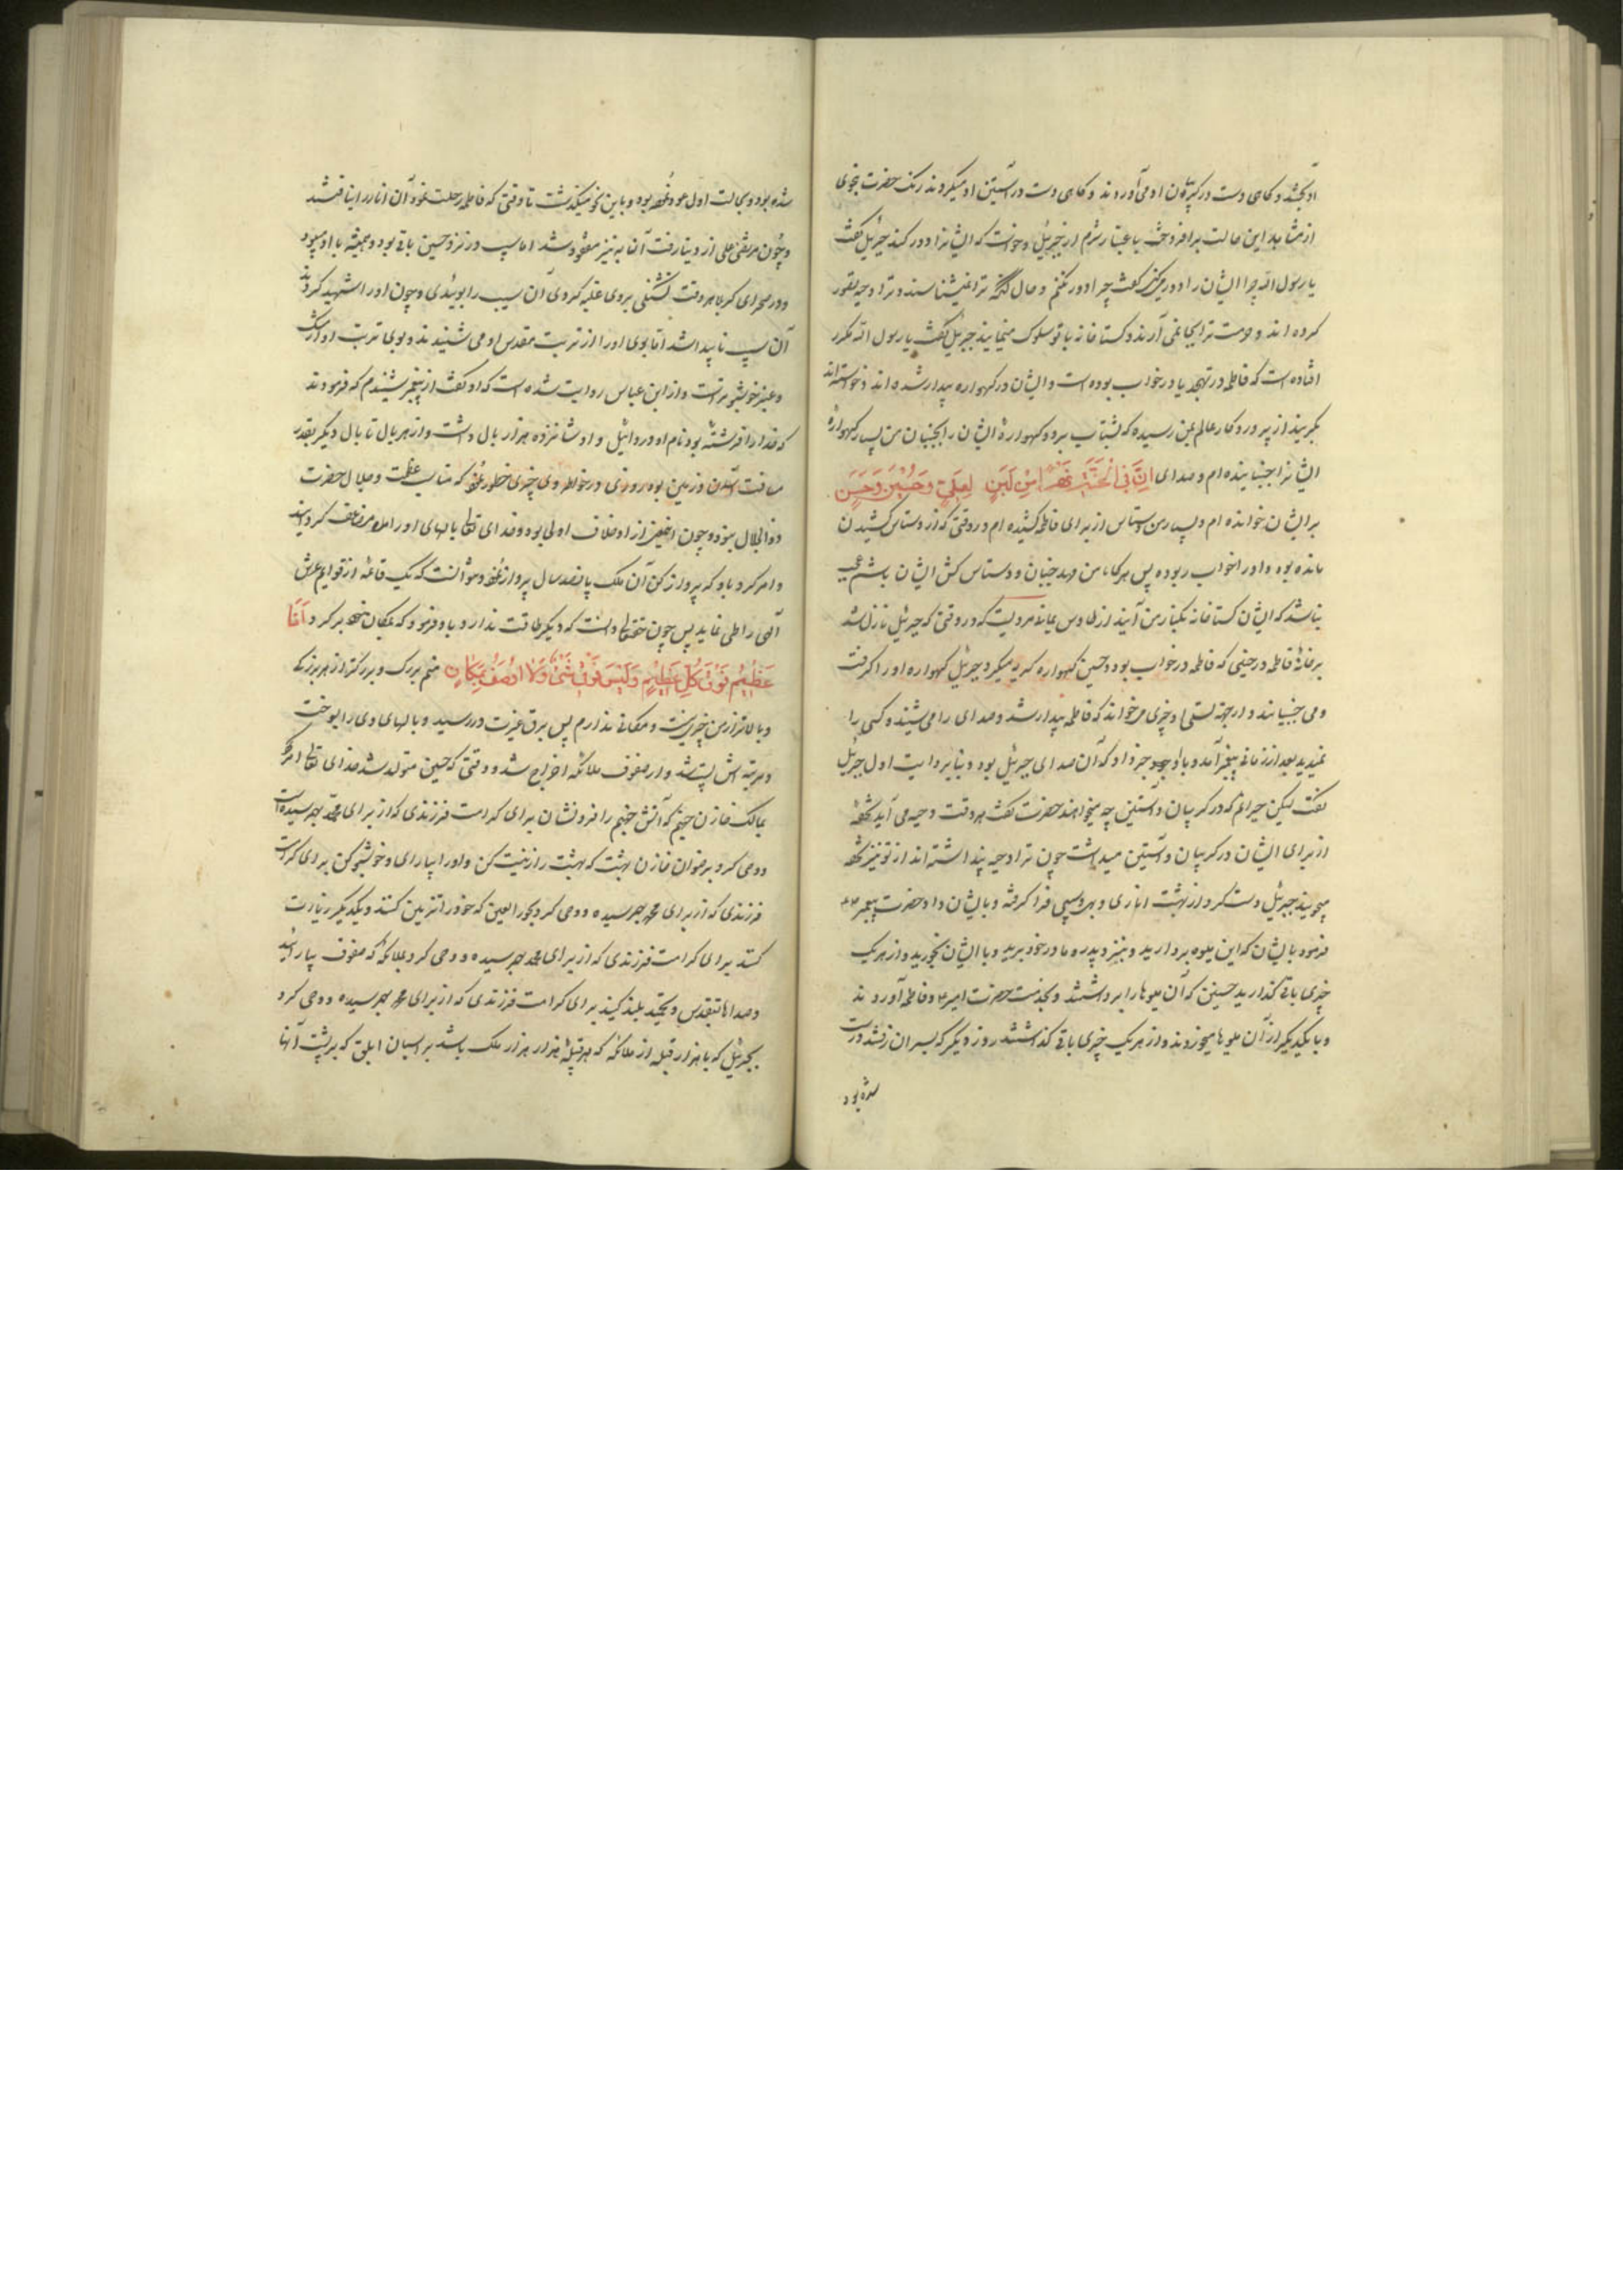 او بجشد و کاهی دست در کریبان او می آوردند و کاهی دست در آستین او میکردند رنک حضرت نبوی
از مشاهد این حالت برافروخت باعتبار شرم از جبرئیل و خواست که ایشانرا دور کند جبرئیل گفت
یا رسول الله چرا ایشان را دور میکنی گفت چرا دور نکنم و حال آنکه ترا نمیشناسند و ترا دحیه تصور
کرده اند و حرمت ترا بجا نمی آرند و گستاخانه با تو سلوک مینمایند جبرئیل گفت یا رسول الله مکرر
افتاده است که فاطمه در تهجد یا در خواب بوده است و ایشان در کهواره بیدار شده اند و خواسته اند
بگریند از پروردکار عالم بمن رسیده که بشتاب برو و کهوارهٔ ایشان را بجنبان من بسیار کهوارهٔ
ایشانرا جنبانیده ام و صدای اِنَّ فِی الْجَنَّةِ نَهْراً مِنْ لَبَنٍ لِعَلِیٍّ وَحُسَیْنٍ وَحَسَنٍ
بر ایشان خوانده ام و بسیار من دستاس از برای فاطمه کشیده ام در وقتی که از دستاس کشیدن
مانده بوده و او را خواب ربوده پس هرگاه من مهد جنبان و دستاس کش ایشان باشم عجب
نباشد که ایشان گستاخانه بکنار من آیند از طاوس یمانی مرویست که در وقتی که جبرئیل نازل شد
بر خانهٔ فاطمه در حینی که فاطمه در خواب بود و حسین در کهواره کریه میکرد جبرئیل کهواره او را گرفت
و می جنبانند و از جهة تسلی او چیزی میخواند که فاطمه بیدار شد و صدای را می شنید و کسی را
نمیدید بعد از زمانی پیغمبر آمد و باو خبر داد که آن صدای جبرئیل بود و بنابر روایت اول جبرئیل
گفت لیکن حیرانم که در کریبان و آستین چه میخواهند حضرت گفت هر وقت دحیه می آید تحفهٔ
از برای ایشان در کریبان و آستین میداشت چون ترا دحیه پنداشته اند از تو نیز تحفه
میجویند جبرئیل دست کرد از بهشت اناری و بهی و سیبی فرا کرفته و بایشان داد حضرت پیغمبر
فرمود بایشان که این میوه بردارید و بنزد پدر و مادر خود برید و با ایشان بخورید و از هر یک
چیزی باقی گذارید حسنین که آن میوها را برداشتند و بخدمت حضرت امیر و فاطمه آوردند
و با یکدیکر از آن میوها میخوردند و از هر یک چیزی باقی کذاشتند روز دیکر که بسر آن رفتند درست
شده بود
شده بود و بحالت اول عود نموده بود و باین نحو میکذشت تا وقتی که فاطمه رحلت نمود آن انار را نیافتند
و چون مرتضی علی از دنیا رفت آن به نیز مفقود شد اما سیب در نزد حسین باقی بود و همیشه با او میبود
و در صحرای کربلا هر وقت تشنکی بر وی غلبه کردی آن سیب را بوئیدی و چون او را شهید کردند
آن سیب ناپیدا شد اما بوی او را از تربت مقدس او می شنیدند و بوی تربت او از مشک
و عنبر خوشبوتر است و از ابن عباس روایت شده است که او گفت از پیغمبر شنیدم که فرمودند
که خدا را فرشتهٔ بود نام او دردائیل و او شانزده هزار بال داشت و از هر بال تا بال دیکر بقدر
مسافت آسمان و زمین بوده روزی در خاطر وی چیزی خطور نمود که مناسب عظمت و جلال حضرت
ذو الجلال نبوده چون از او خلاف اولی بود خدای تعالی بالهای او را مضاعف کردانید
و امر کرد باو که پرواز کن آن ملک پانصد سال پرواز نمود و نتوانست که یک قائمه از قوایم عرش
آلهی را طی نماید پس چون حقتعالی دانست که دیکر طاقت ندارد باو فرمود که بمکان خود برکرد اَنَا
عَظِیْمٌ فَوْقَ کُلِّ عَظِیْمٍ وَلَیْسَ فَوْقِی شَیْءٌ وَلَا اُوْصَفُ بِمَکَانٍ منم بزرک و بزرکتر از هر بزرکی
و بالاتر از من چیزی نیست و مکانی ندارم پس برق غیرت در رسید و بالهای وی را بسوخت
و مرتبه اش پست شد و از صفوف ملائکه اخراج شد و وقتی که حسین متولد شد خدای تعالی امر کرد
بمالک خازن جهنم که آتش جهنم را فرو نشان برای کرامت فرزندی که از برای محمد بهم رسیده است
و وحی کرد برضوان خازن بهشت که بهشت را زینت کن و او را بیارای و خوشبو کن برای کرامت
فرزندی که از برای محمد بهم رسیده و وحی کرد بحور العین که خود را تزیین کنند و یکدیکر را زیارت
کنند برای کرامت فرزندی که از برای محمد بهم رسیده و وحی کرد بملائکه که صفوف بیارائید
و صداها بتقدیس و تمجید بلند کنید برای کرامت فرزندی که از برای محمد بهم رسیده و وحی کرد
بجبرئیل که با هزار قبیله از ملائکه که هر قبیلهٔ هزار هزار ملک باشد بر اسبان ابلق که بر پشت آنها